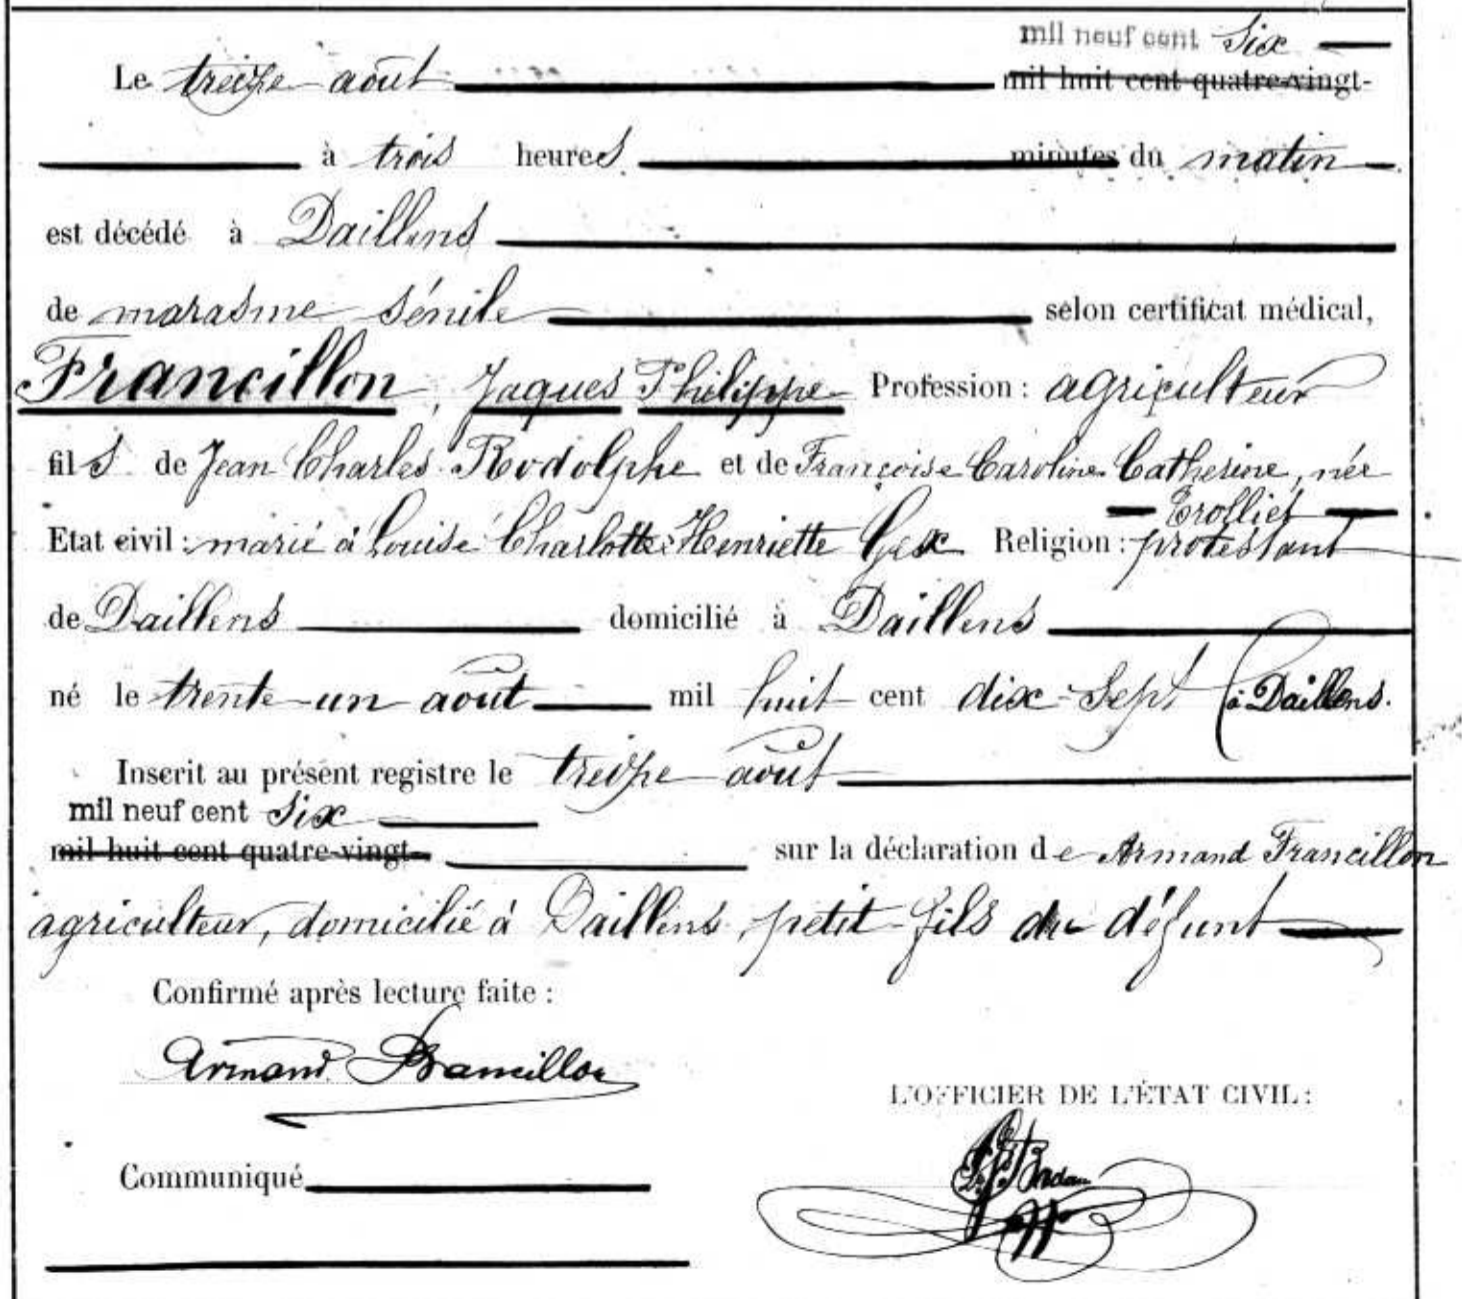 mil neuf cent Six
Le treize août mil huit cent quatre-vingt-
à trois heures minutes du matin
est décédé à Daillens
de marasme sénile selon certificat médical,
Francillon, Jaques Philippe Profession : agriculteur
fils de Jean Charles Rodolphe et de Françoise Caroline Catherine, née
Trolliet
Etat civil : marié à Louise Charlotte Henriette Gex Religion : protestant
de Daillens domicilié à Daillens
né le trente-un août mil huit cent dix-sept (à Daillens.
Inscrit au présent registre le treize août
mil neuf cent Six
mil huit cent quatre-vingt- sur la déclaration de Armand Francillon
agriculteur, domicilié à Daillens, petit-fils du défunt
Confirmé après lecture faite :
Armand Francillon
L'OFFICIER DE L'ÉTAT CIVIL :
Communiqué